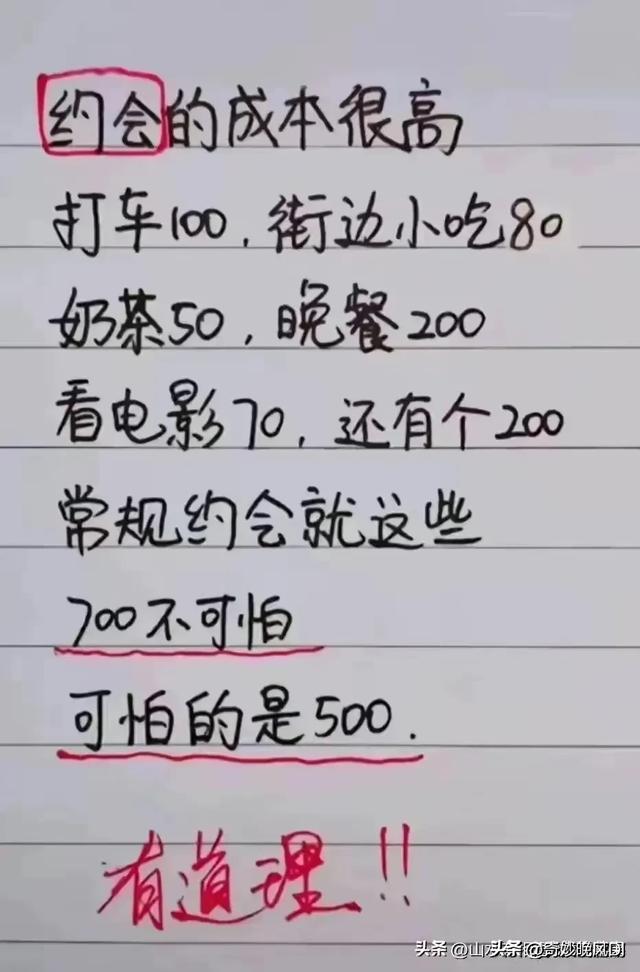 约会的成本很高
打车100，街边小吃80
奶茶50，晚餐200
看电影70，还有个200
常规约会就这些
700不可怕
可怕的是500.
有道理!!